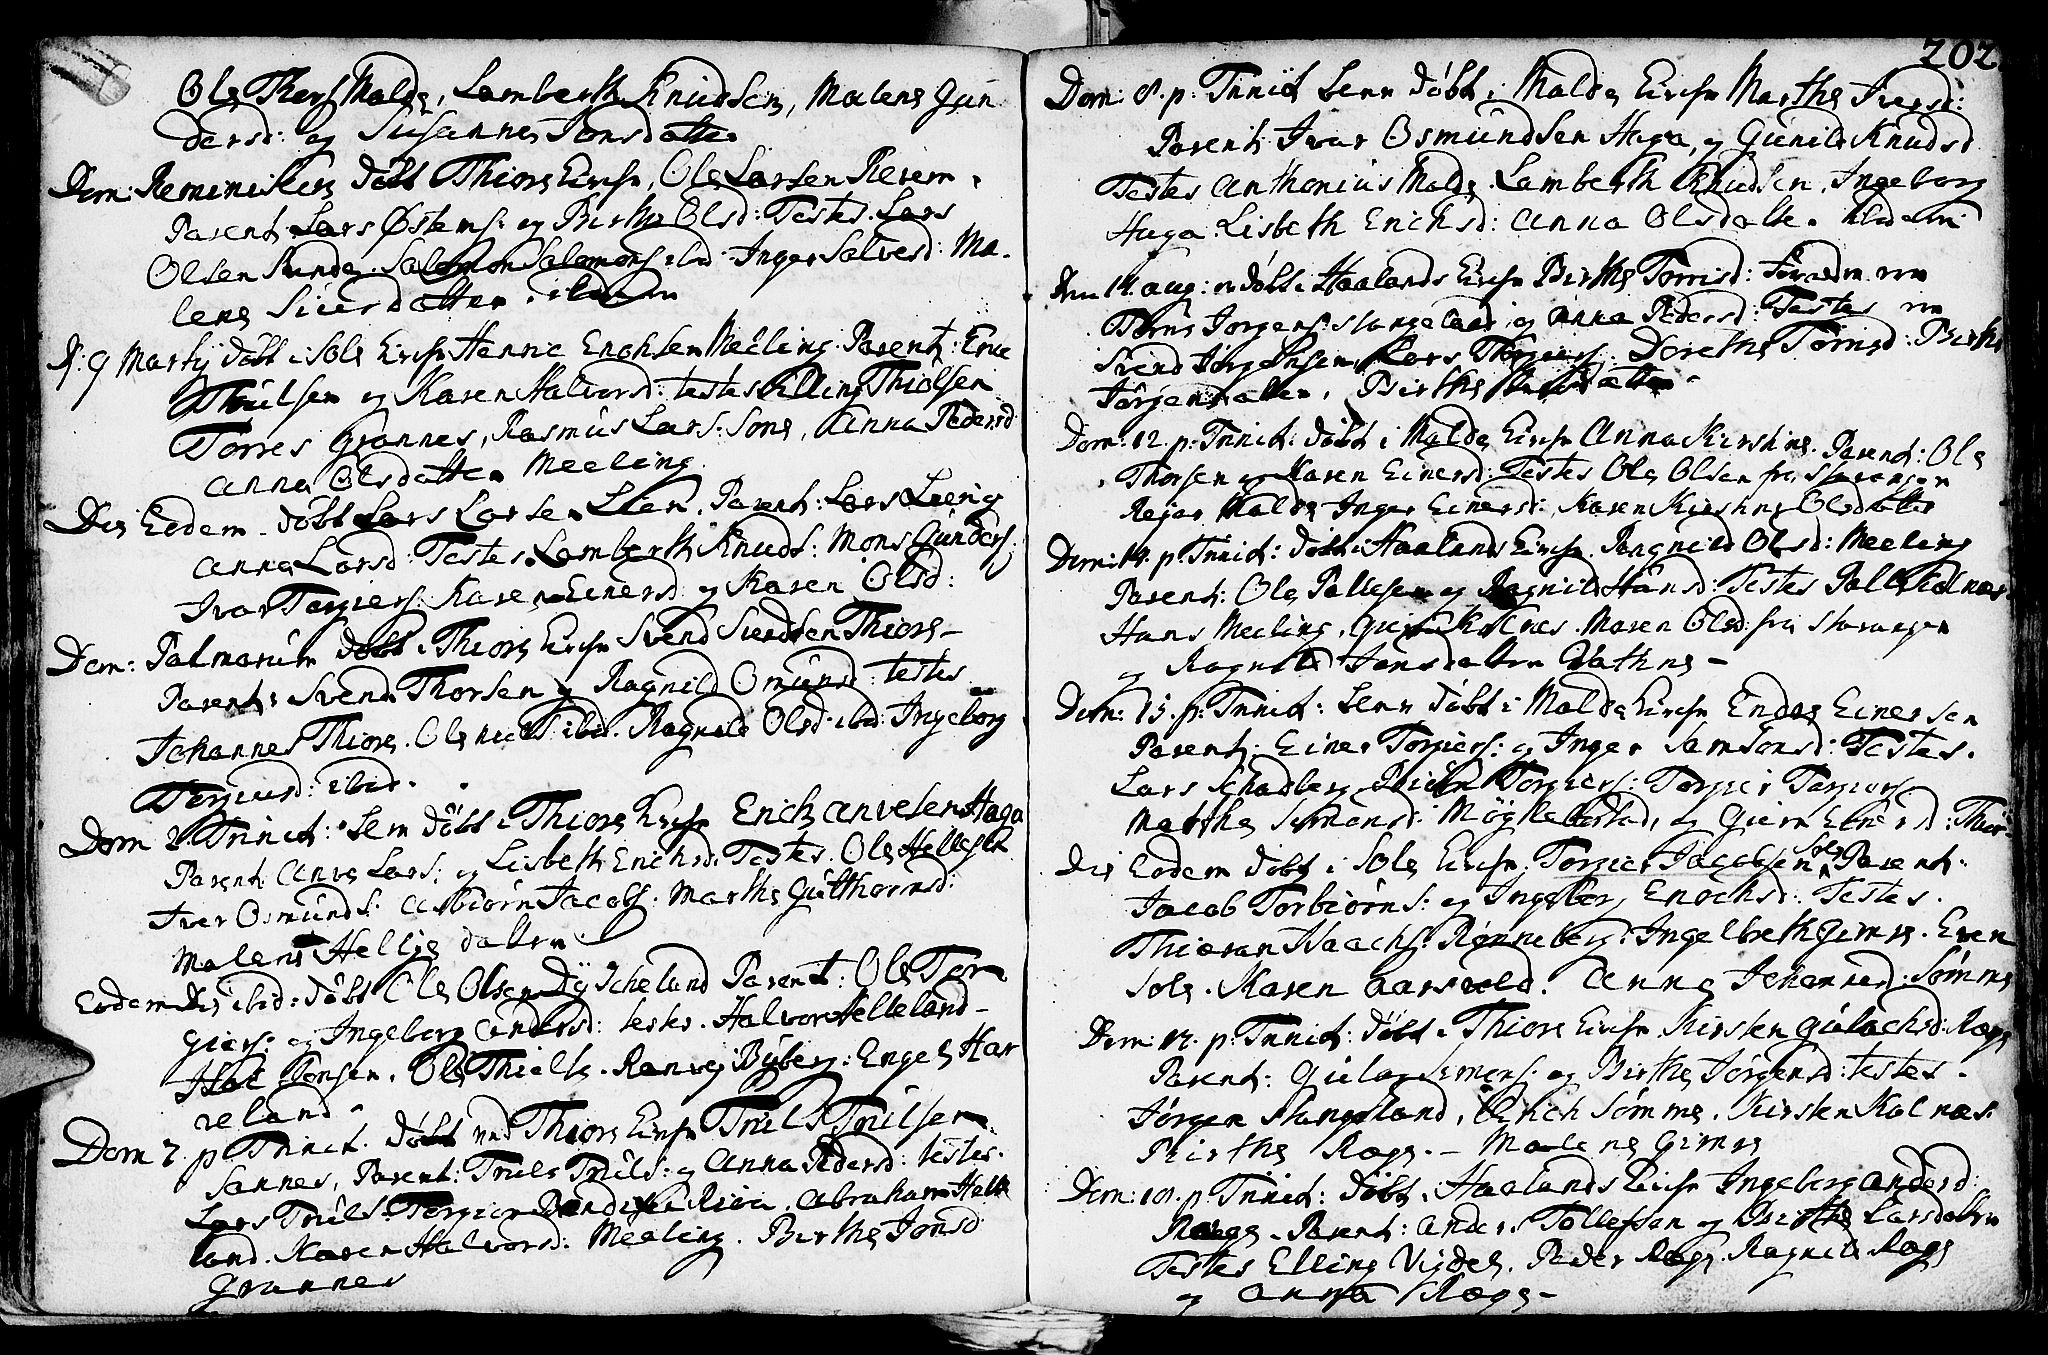 Ole Thors Malde, Lamberth Knudsen, Malene Gun
dersd: og Susanne Jonsdatter
Dom: Reminiscere döbt Thiore Kirche, Ole Larsen Reiem.
Parent: Lars Østens: og Birthe Olsd: Testes. Lars
Olsen Sunde. Salomon Salomons: ibd: Inger Salvesd: Ma-
lene Siversdatter ibidem
D: 9 Martij döbt i Sole Kirche Hannie Enochsen Meeling. Parent: Enoc
Truilsen og Karen Halvorsd: testes Elling Thiolsen
Torres Grannes, Rasmus Lars: Sone, Anna Pedersd
Anna Olsdatter Meeling.
Die Eodem döbt Lars Larsen Lien. Parent: Lars Lien og
Anna Larsd: Testes. Lamberth Knuds: Mons Gunders:
Ivar Torgiers: Karen Einersd: og Karen Olsd:
Dom: Palmarum döbt Thiore Kirche Svend Svendsen Thiore
Parent: Svend Thorsen og Ragnild Omunsd: testes
Johannes Thiore. Ole ibid. Ragnild Olsd: ibd: Ingeborg
Torgiersd: ibid.
Dom 2. Trinit: Sem döbt i Thiore Kirche Erich Anvesen Haga
Parent Anve Lars: og Lisbeth Erichsd: Testes. Ole Hellesld
Iver Osmunds: Asbiörn Jacobs: Marthe Gulthormsd:
Malene Hellisdaltn
Eodem Die ibid: döbt Ole Olsen Dyscheland Parent: Ole Tor
giers: og Ingeborg Andersd: testes. Halvor Helleland
Jonsen. Ole Thielte. Ranvej Byberg: Engel Har
reland.
Dom 7. p Trinit. döbt ved Thiore Kirche Truls Trulsen
Sannes, Parent: Truls Truls: og Anna Pedersd: testes.
Lars Truls: Torgier Rica. Abraham Helle
land. Karen Halvorsd: Meeling. Birthe Jonsd
Grannes
202.
Dom: 8. p. Trinit Sem döbt i Malde Kirche Marthe Iversd:
Parent: Ivar Osmundsen Haga, og Gunild Knudsd
Testes Anthonius Malde. Lamberth Knudsen, Ingeborg
Haga. Lisbeth Erichsd: Anna Olsdatter. ibidem
Den 14. Aug: döbt i Haalands Kirche Birthe Torrisd:
Torris Jorgens: Slangeland og Anna Pedersd: Testes
Svend Jörgensen Lars Torgiers. Dorethe Torrisd: Birthe
Jörgensdatter, Birthe
Dom: 12. p. Trinit: döbt i Malde Kirche Anna Kirstine. Parent: Ole
Thorsen og Karen Einersd: Testes Ole Olsen fra Stavanger
Rejar Malde Inger Einersd: Karen Kirstine Olsdatter
Dom: 14. p. Trinit: döbt i Haalands Kirche. Ragnild Olsd: Meeling
Parent: Ole Pallesen og Ragnild Hansd: Testes Palle Kolnæs.
Hans Meeling, Kolnes. Maren Olsd: fra Stavanger
og Ragnild Jonsdaltn Wathne -
Dom: 15. p. Trinit: Sem döbt i Malde Kirche Endre Einersen
Parent: Einer Torgiers: og Inger Samsonsd: Testes.
Lars Schadberg Torgiers: Torgier Torgiers
Marthe Simonsd: Möglebustad, og Giern Einersd: Thior
Die Eodem döbt i Sole Kirche Torgier Jacobsen Sole Parent:
Jacob Torbiörns: og Ingeborg Enochsd: Testes.
Thioran Haachs: Rönneberg: Ingelbreth Gimre. Even
Sole. Karen Aarsvold. Anna Johannesd: Sömme
Dom: 17. p. Trinit: döbt Thiore Kirche Kirsten Gulachsd: Rege
Parent: Gulag Simons: og Birthe Jörgensd: testes.
Jörgen Slangeland, Erich Sömme. Kirsten Kolnæs.
Birthe Rege. - Malene Gimre
Dom: 18. p. Trinit: döbt i Haalands Kirche Ingeborg Andersd:
Rege. Parent: Anders Tollefsen og Birthe Larsdaltn
Testes Elling Vigdel. Peder Rege. Ragnild Rege
og Anna Rege -